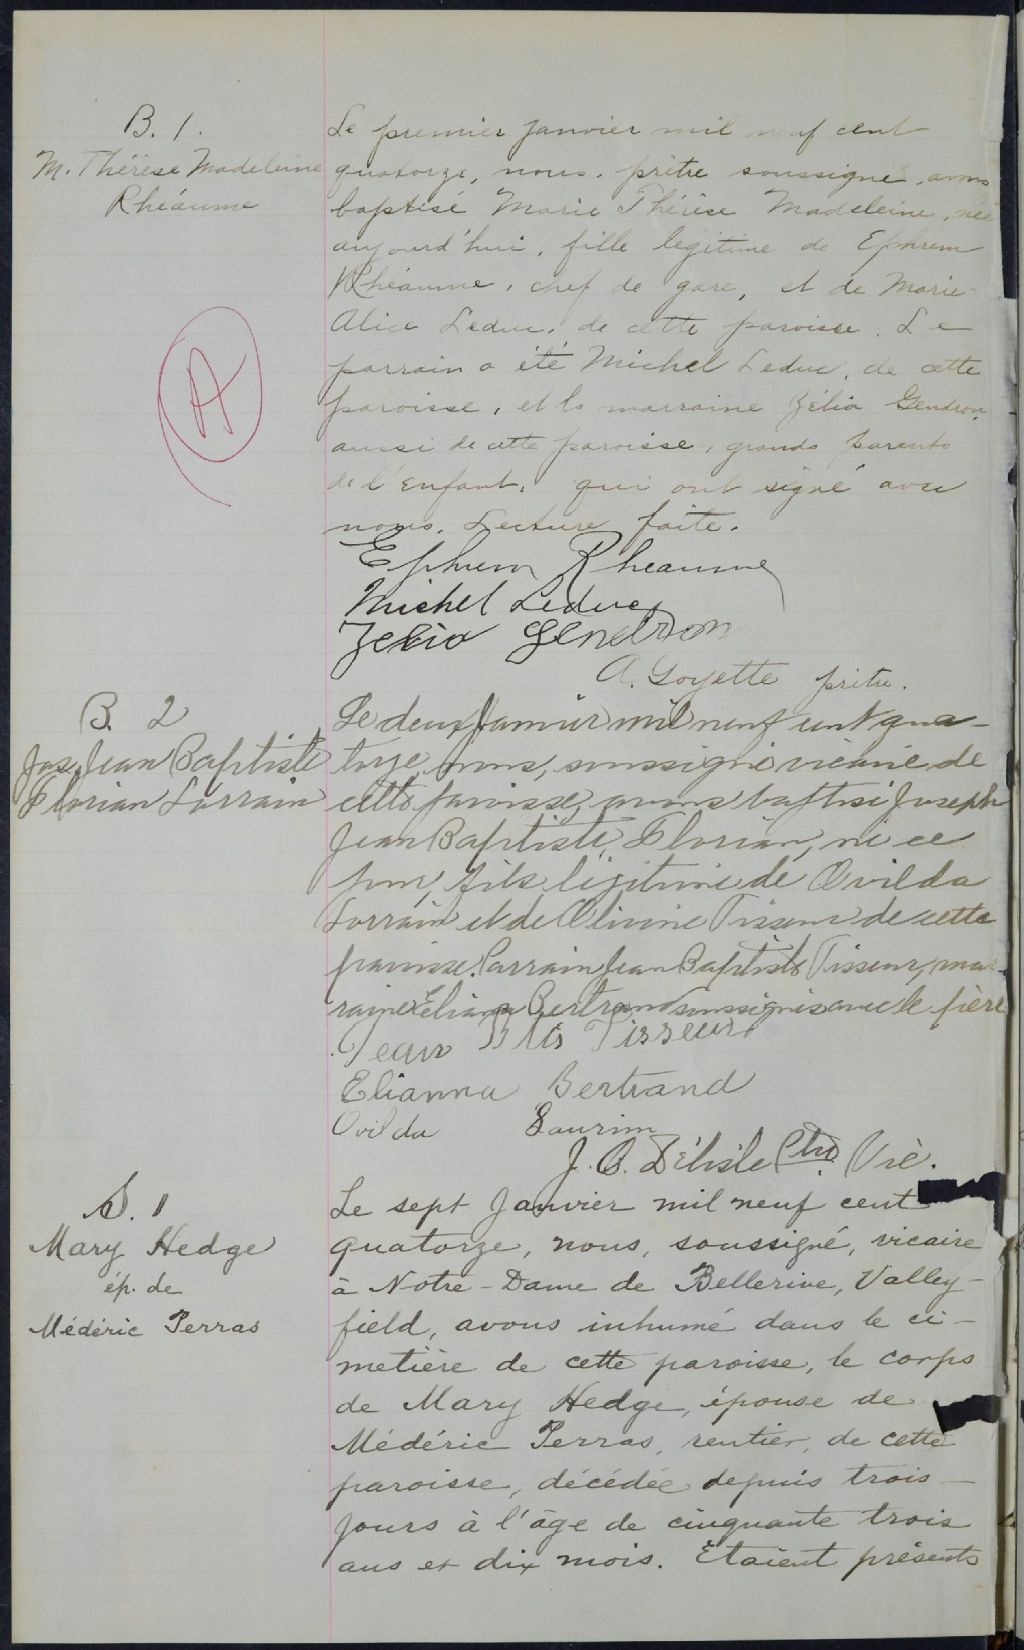 B. 1.
M. Thérèse Madeleine
Rhéaume
Le premier janvier mil neuf cent
quatorze, nous, prêtre soussigné, avons
baptisé Marie Thérèse Madeleine, née
aujourd'hui, fille légitime de Ephrem
Rhéaume, chef de gare, et de Marie-
Alice Leduc, de cette paroisse. Le
parrain a été Michel Leduc, de cette
paroisse, et la marraine Zélia Gendron,
aussi de cette paroisse, grands parents
de l'enfant, qui ont signé avec
nous. Lecture faite.
Ephrem Rheaume
Michel Leduc
Zelia Gendron
A. Goyette prêtre.
A
B. 2
Jos. Jean Baptiste
Florian Lorrain
Le deux janvier mil neuf cent qua-
torze, nous, soussigné vicaire de
cette paroisse, avons baptisé Joseph
Jean Baptiste, Florian, né ce
jour, fils légitime de Ovilda
Lorrain et de Olivine Tisseur de cette
paroisse. Parrain Jean Baptiste Tisseur, mar-
raine Eliana Bertrand soussignés avec le père
Jean Bte Tisseur
Elianna Bertrand
Ovilda Laurin
J. B. Délisle Ptre Vic.
S. 1
Mary Hedge
ép. de
Médéric Perras
Le sept Janvier mil neuf cent
quatorze, nous, soussigné, vicaire
à Notre-Dame de Bellerive, Valley-
field, avons inhumé dans le ci-
metière de cette paroisse, le corps
de Mary Hedge, épouse de
Médéric Perras, rentier, de cette
paroisse, décédée depuis trois
jours à l'âge de cinquante trois
ans et dix mois. Étaient présents